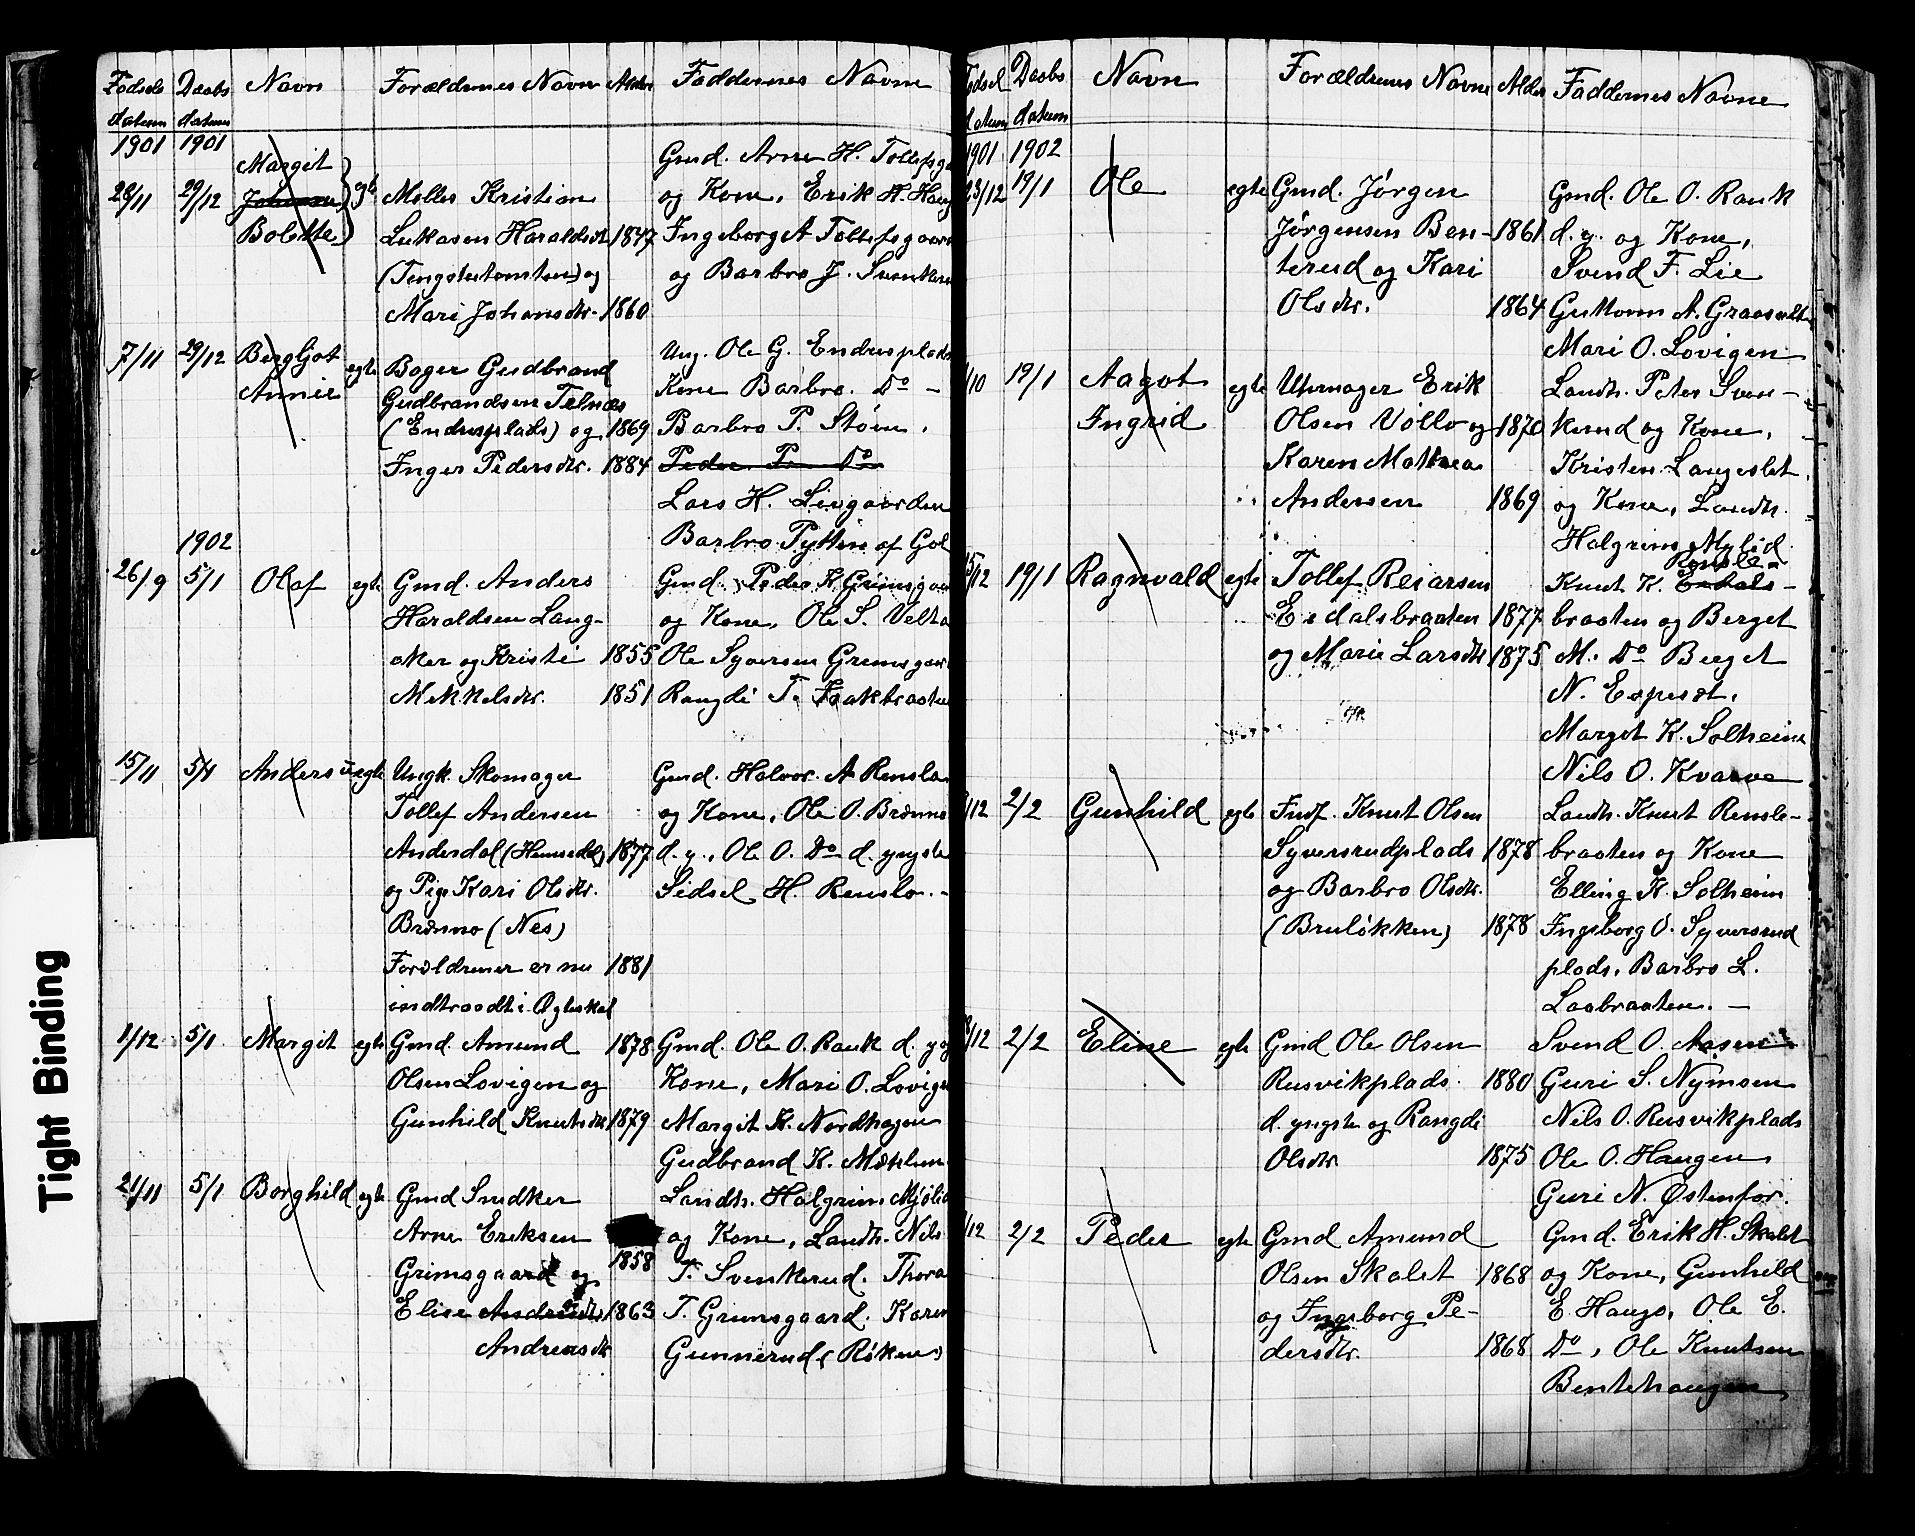 Fødsels
datum
Daabs
datum
Navn
Forældrenes Navn
Alder
Faddernes Navne
1901
1901
28/11
29/12
Margit
Johanne
Bolette
egte
Møller Kristian
Lukasen Haraldset
1847
(Tengstertomten) og
Mari Johansdtr.
1860
Gmd. Arne H. Tollefsga
og Kone, Erik H. Haug
Ingeborg A Tollefsgaard
og Barbro J. Svenkerud
7/11
29/12
Bergljot
Annie
egte
Bager Gudbrand
Gudbrandsen Telnæs
(Endrusplads) og
1869
Inger Pedersdtr.
1884
Ung. Ole G. Endrusplads
Kone Barbro Do -
Barbro P. Støen,
Peder P. Do
Lars H. Liegaarden
Barbro Pytten af Gol
1902
26/9
5/1
Olaf
egte
Gmd. Anders
Haraldsen Lang-
aker og Kristi
1855
Mekkelsdtr.
1851
Gmd. Peder K Grimsgaa
og Kone, Ole S. Velta
Ole Syversen Grimsgaar
Rangdi T.
15/11
5/1
Anders
uegte
Ungk. Skomager
Tollef Andersen
Anderdal (Hemsedal)
1877
og Pige Kari Olsdtr.
Brænno (Nes)
Forældrener er nu
1881
indtraadt i Ægteskab
Gmd. Halvor A Renslo
og Kone, Ole O. Brænno
d. y., Ole O. Do d. yngste
Sidsel H. Renslo. -
1/12
5/1
Margit
egte
Gmd. Amund
1878
Olsen Lovigen og
Gunhild Knutsdtr
1879
Gmd. Ole O. Rauk d. y og
Kone, Mari O. Lovigen
Margit K. Nordhagen
Gudbrand K.
21/11
5/1
Borghild
egte
Gmd Snedker
Arne Eriksen
Grimsgaard og
1858
Elise
1863
Andreasdtr
Landh. Halgrim Mjølid
og Kone, Landh. Nils
T. Svenkerud. Thora
T. Grimsgaard. Karen
Gunnerud (Røken)
Fødsel
datum
Daabs
datum
Navn
Forældrenes Navne
Alder
Faddernes Navne
1901
1902
23/12
19/1
Ole
egte
Gmd. Jørgen
Jørgensen Ben-
1861
terud og Kari
Olsdtr.
1864
Gmd. Ole O. Rauk
d. y. og Kone,
Svend F. Lie
Guttorm A. Graasalt
Mari O. Lovigen
/10
19/1
Aagot
Ingrid
egte
Uhrmager Erik
Olsen Vøllo og
1870
Karen Mathea
Andersen
1869
Landh. Peter Sven-
kerud og Kone,
Kristen Langeslet
og Kone, Landh.
Halgrim Myløid
15/12
19/1
Ragnvald
egte
Tollef Reiarsen
Eidalsbraaten
1877
og Marie Larsdtr
1875
Rensle-
Knut K. Eidals-
braaten og Berget
M. Do Berget
N. Espeset.
Margit K. Solheim
Nils O. Kvarve
/12
2/2
Gunhild
egte
Indf. Knut Olsen
Syversrudplads
1878
og Barbro Olsdtr.
(Bruløkken)
1878
Landh. Knut Rensle-
braaten og Kone
Elling K. Solheim
Ingeborg O. Syversrud
plads. Barbro L.
Laabraaten. -
8/12
2/2
Eline
egte
Gmd Ole Olsen
Rusvikplads
1880
d. yngste og Rangdi
Olsdtr
1875
Svend O. Aasen
Guri S. Nymoen
Nils O. Rusvikplads
Ole O. Haugen
Guri N. Østenfor.
/12
2/2
Peder
egte
Gmd Amund
Olsen Skalet
1868
og Ingeborg Pe-
dersdtr.
1868
Gmd. Erik H. Skalet
og Kone, Gunhild
E. Haugo, Ole E.
Do, Ole Knutsen
Bentehaugen
Tight Binding